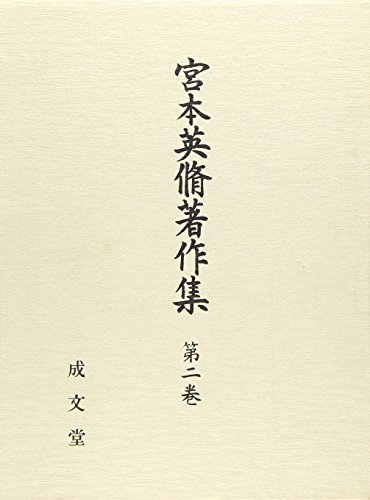 宮本英脩著作集
第二巻
成文堂